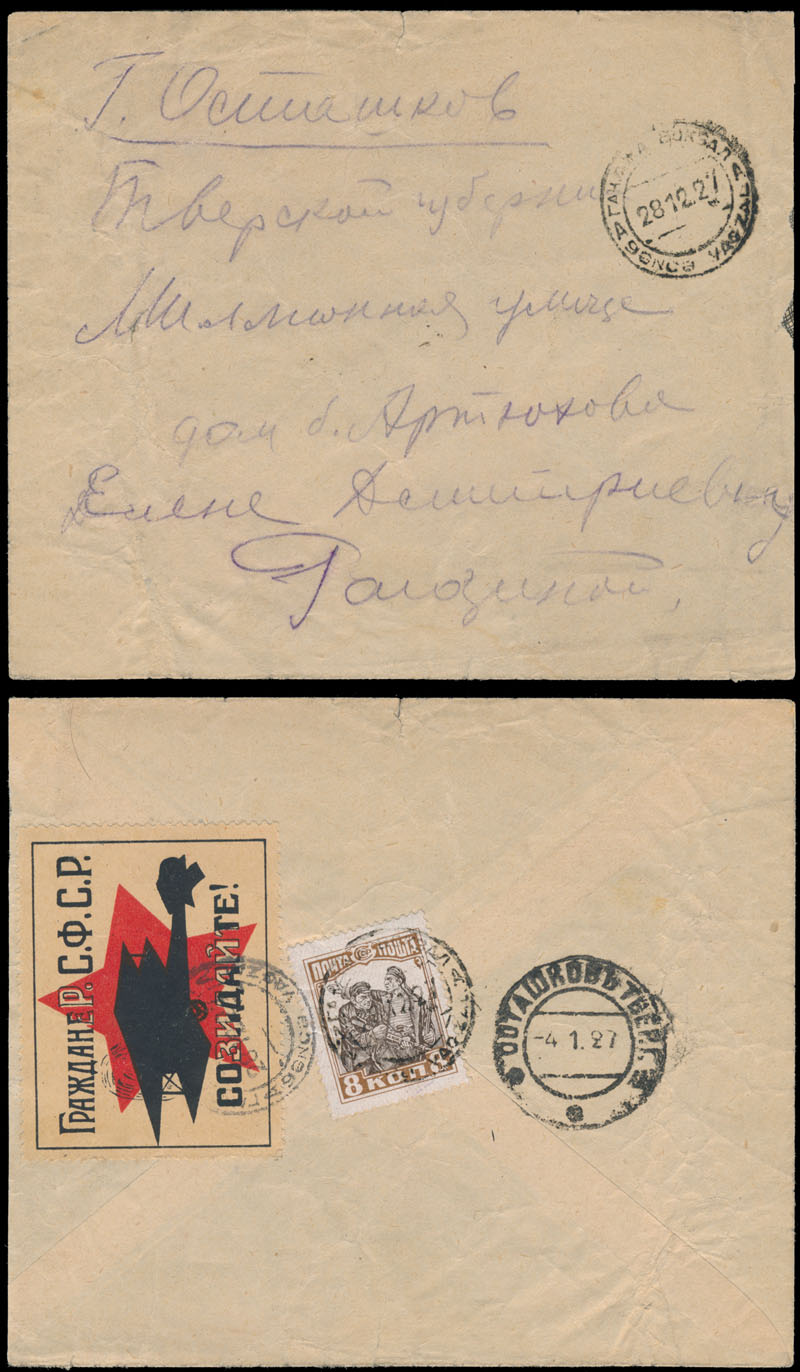 Г. Осташков
Тверской губернии
Миллионная улица
дом б. Артюхова
Елене Дмитриевне
28 12.27
VAGZALA
ГРАЖДАНЕ Р.С.Ф.С.Р.
СОЗИДАЙТЕ!
ПОЧТА
8 КОП 8
ОСТАШКОВЪ ТВЕР.Г.
-4 1.27